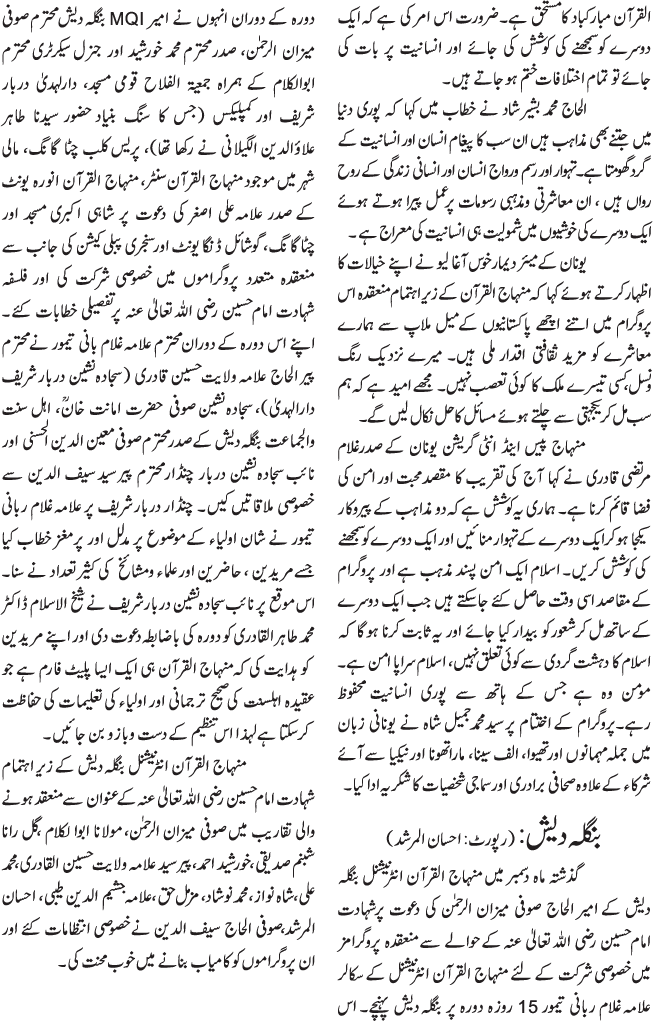 القرآن مبارکباد کا مستحق ہے۔ ضرورت اس امر کی ہے کہ ایک
دوسرے کو سمجھنے کی کوشش کی جائے اور انسانیت پر بات کی
جائے تو تمام اختلافات ختم ہو جاتے ہیں۔
الحاج محمد بشیر شاد نے خطاب میں کہا کہ پوری دنیا
میں جتنے بھی مذاہب ہیں ان سب کا پیغام انسان اور انسانیت کے
گرد گھومتا ہے۔ تہوار اور رسم و رواج انسان اور انسانی زندگی کے روح
رواں ہیں، ان معاشرتی و مذہبی رسومات پر عمل پیرا ہوتے ہوئے
ایک دوسرے کی خوشیوں میں شمولیت ہی انسانیت کی معراج ہے۔
یونان کے میئر دیمارخوس آغا لیو نے اپنے خیالات کا
اظہار کرتے ہوئے کہا کہ منہاج القرآن کے زیر اہتمام منعقدہ اس
پروگرام میں اتنے اچھے پاکستانیوں کے میل ملاپ سے ہمارے
معاشرے کو مزید ثقافتی اقدار ملی ہیں۔ میرے نزدیک رنگ
و نسل، کسی تیسرے ملک کا کوئی تعصب نہیں۔ مجھے امید ہے کہ ہم
سب مل کر یکجہتی سے چلتے ہوئے مسائل کا حل نکال لیں گے۔
منہاج پیس اینڈ انٹی گریشن یونان کے صدر غلام
مرتضی قادری نے کہا آج کی تقریب کا مقصد محبت اور امن کی
فضا قائم کرنا ہے۔ ہماری یہ کوشش ہے کہ دو مذاہب کے پیروکار
یکجا ہو کر ایک دوسرے کے تہوار منائیں اور ایک دوسرے کو سمجھنے
کی کوشش کریں۔ اسلام ایک امن پسند مذہب ہے اور پروگرام
کے مقاصد اسی وقت حاصل کئے جاسکتے ہیں جب ایک دوسرے
کے ساتھ مل کر شعور کو بیدار کیا جائے اور یہ ثابت کرنا ہوگا کہ
اسلام کا دہشت گردی سے کوئی تعلق نہیں، اسلام سراپا امن ہے۔
مؤمن وہ ہے جس کے ہاتھ سے پوری انسانیت محفوظ
رہے۔ پروگرام کے اختتام پر سید محمد جمیل شاہ نے یونانی زبان
میں جملہ مہمانوں اور تھیوا، الف سینا، ماراتھونا اور نیکیا سے آئے
شرکاء کے علاوہ صحافی برادری اور سماجی شخصیات کا شکریہ ادا کیا۔
بنگلہ دیش: (رپورٹ: احسان المرشد)
گذشتہ ماہ دسمبر میں منہاج القرآن انٹرنیشنل بنگلہ
دیش کے امیر الحاج صوفی میزان الرحمٰن کی دعوت پر شہادت
امام حسین رضی اللہ تعالیٰ عنہ کے حوالے سے منعقدہ پروگرامز
میں خصوصی شرکت کے لئے منہاج القرآن انٹرنیشنل کے سکالر
علامہ غلام ربانی تیمور 15 روزہ دورہ پر بنگلہ دیش پہنچے۔ اس
دورہ کے دوران انہوں نے امیر MQI بنگلہ دیش محترم صوفی
میزان الرحمٰن، صدر محترم محمد خورشید اور جنرل سیکرٹری محترم
ابوالکلام کے ہمراہ جمعیۃ الفلاح قومی مسجد، دارلہدیٰ دربار
شریف اور کمپلیکس (جس کا سنگ بنیاد حضور سیدنا طاہر
علاؤالدین الگیلانی نے رکھا تھا)، پریس کلب چٹا گانگ، مالی
شہر میں موجود منہاج القرآن سنٹر، منہاج القرآن انورہ یونٹ
کے صدر علامہ علی اصغر کی دعوت پر شاہی اکبری مسجد اور
چٹا گانگ، گوشائل ڈنگا یونٹ اور سنجری پبلی کیشن کی جانب سے
منعقدہ متعدد پروگراموں میں خصوصی شرکت کی اور فلسفہ
شہادت امام حسین رضی اللہ تعالیٰ عنہ پر تفصیلی خطابات کئے۔
اپنے اس دورہ کے دوران محترم علامہ غلام بانی تیمور نے محترم
پیر الحاج علامہ ولایت حسین قادری (سجادہ نشین دربار شریف
دارالہدیٰ)، سجادہ نشین صوفی حضرت امانت خانؒ، اہل سنت
والجماعت بنگلہ دیش کے صدر محترم صوفی معین الدین الحسنی اور
نائب سجادہ نشین دربار چنڈار محترم پیر سید سیف الدین سے
خصوصی ملاقاتیں کیں۔ چنڈار دربار شریف پر علامہ غلام ربانی
تیمور نے شان اولیاء کے موضوع پر مدلل اور پر مغز خطاب کیا
جسے مریدین، حاضرین اور علماء و مشائخ کی کثیر تعداد نے سنا۔
اس موقع پر نائب سجادہ نشین دربار شریف نے شیخ الاسلام ڈاکٹر
محمد طاہر القادری کو دورہ کی باضابطہ دعوت دی اور اپنے مریدین
کو ہدایت کی کہ منہاج القرآن ہی ایک ایسا پلیٹ فارم ہے جو
عقیدہ اہلسنت کی صحیح ترجمانی اور اولیاء کی تعلیمات کی حفاظت
کرسکتا ہے لہذا اس تنظیم کے دست و بازو بن جائیں۔
منہاج القرآن انٹرنیشنل بنگلہ دیش کے زیر اہتمام
شہادت امام حسین رضی اللہ تعالیٰ عنہ کے عنوان سے منعقد ہونے
والی تقاریب میں صوفی میزان الرحمٰن، مولانا ابوالکلام، گل رانا
شبنم صدیقی، خورشید احمد، پیر سید علامہ ولایت حسین القادری، محمد
علی، شاہ نواز، محمد نوشاد، مزمل حق، علامہ جشیم الدین طیبی، احسان
المرشد، صوفی الحاج سیف الدین نے خصوصی انتظامات کئے اور
ان پروگراموں کو کامیاب بنانے میں خوب محنت کی۔